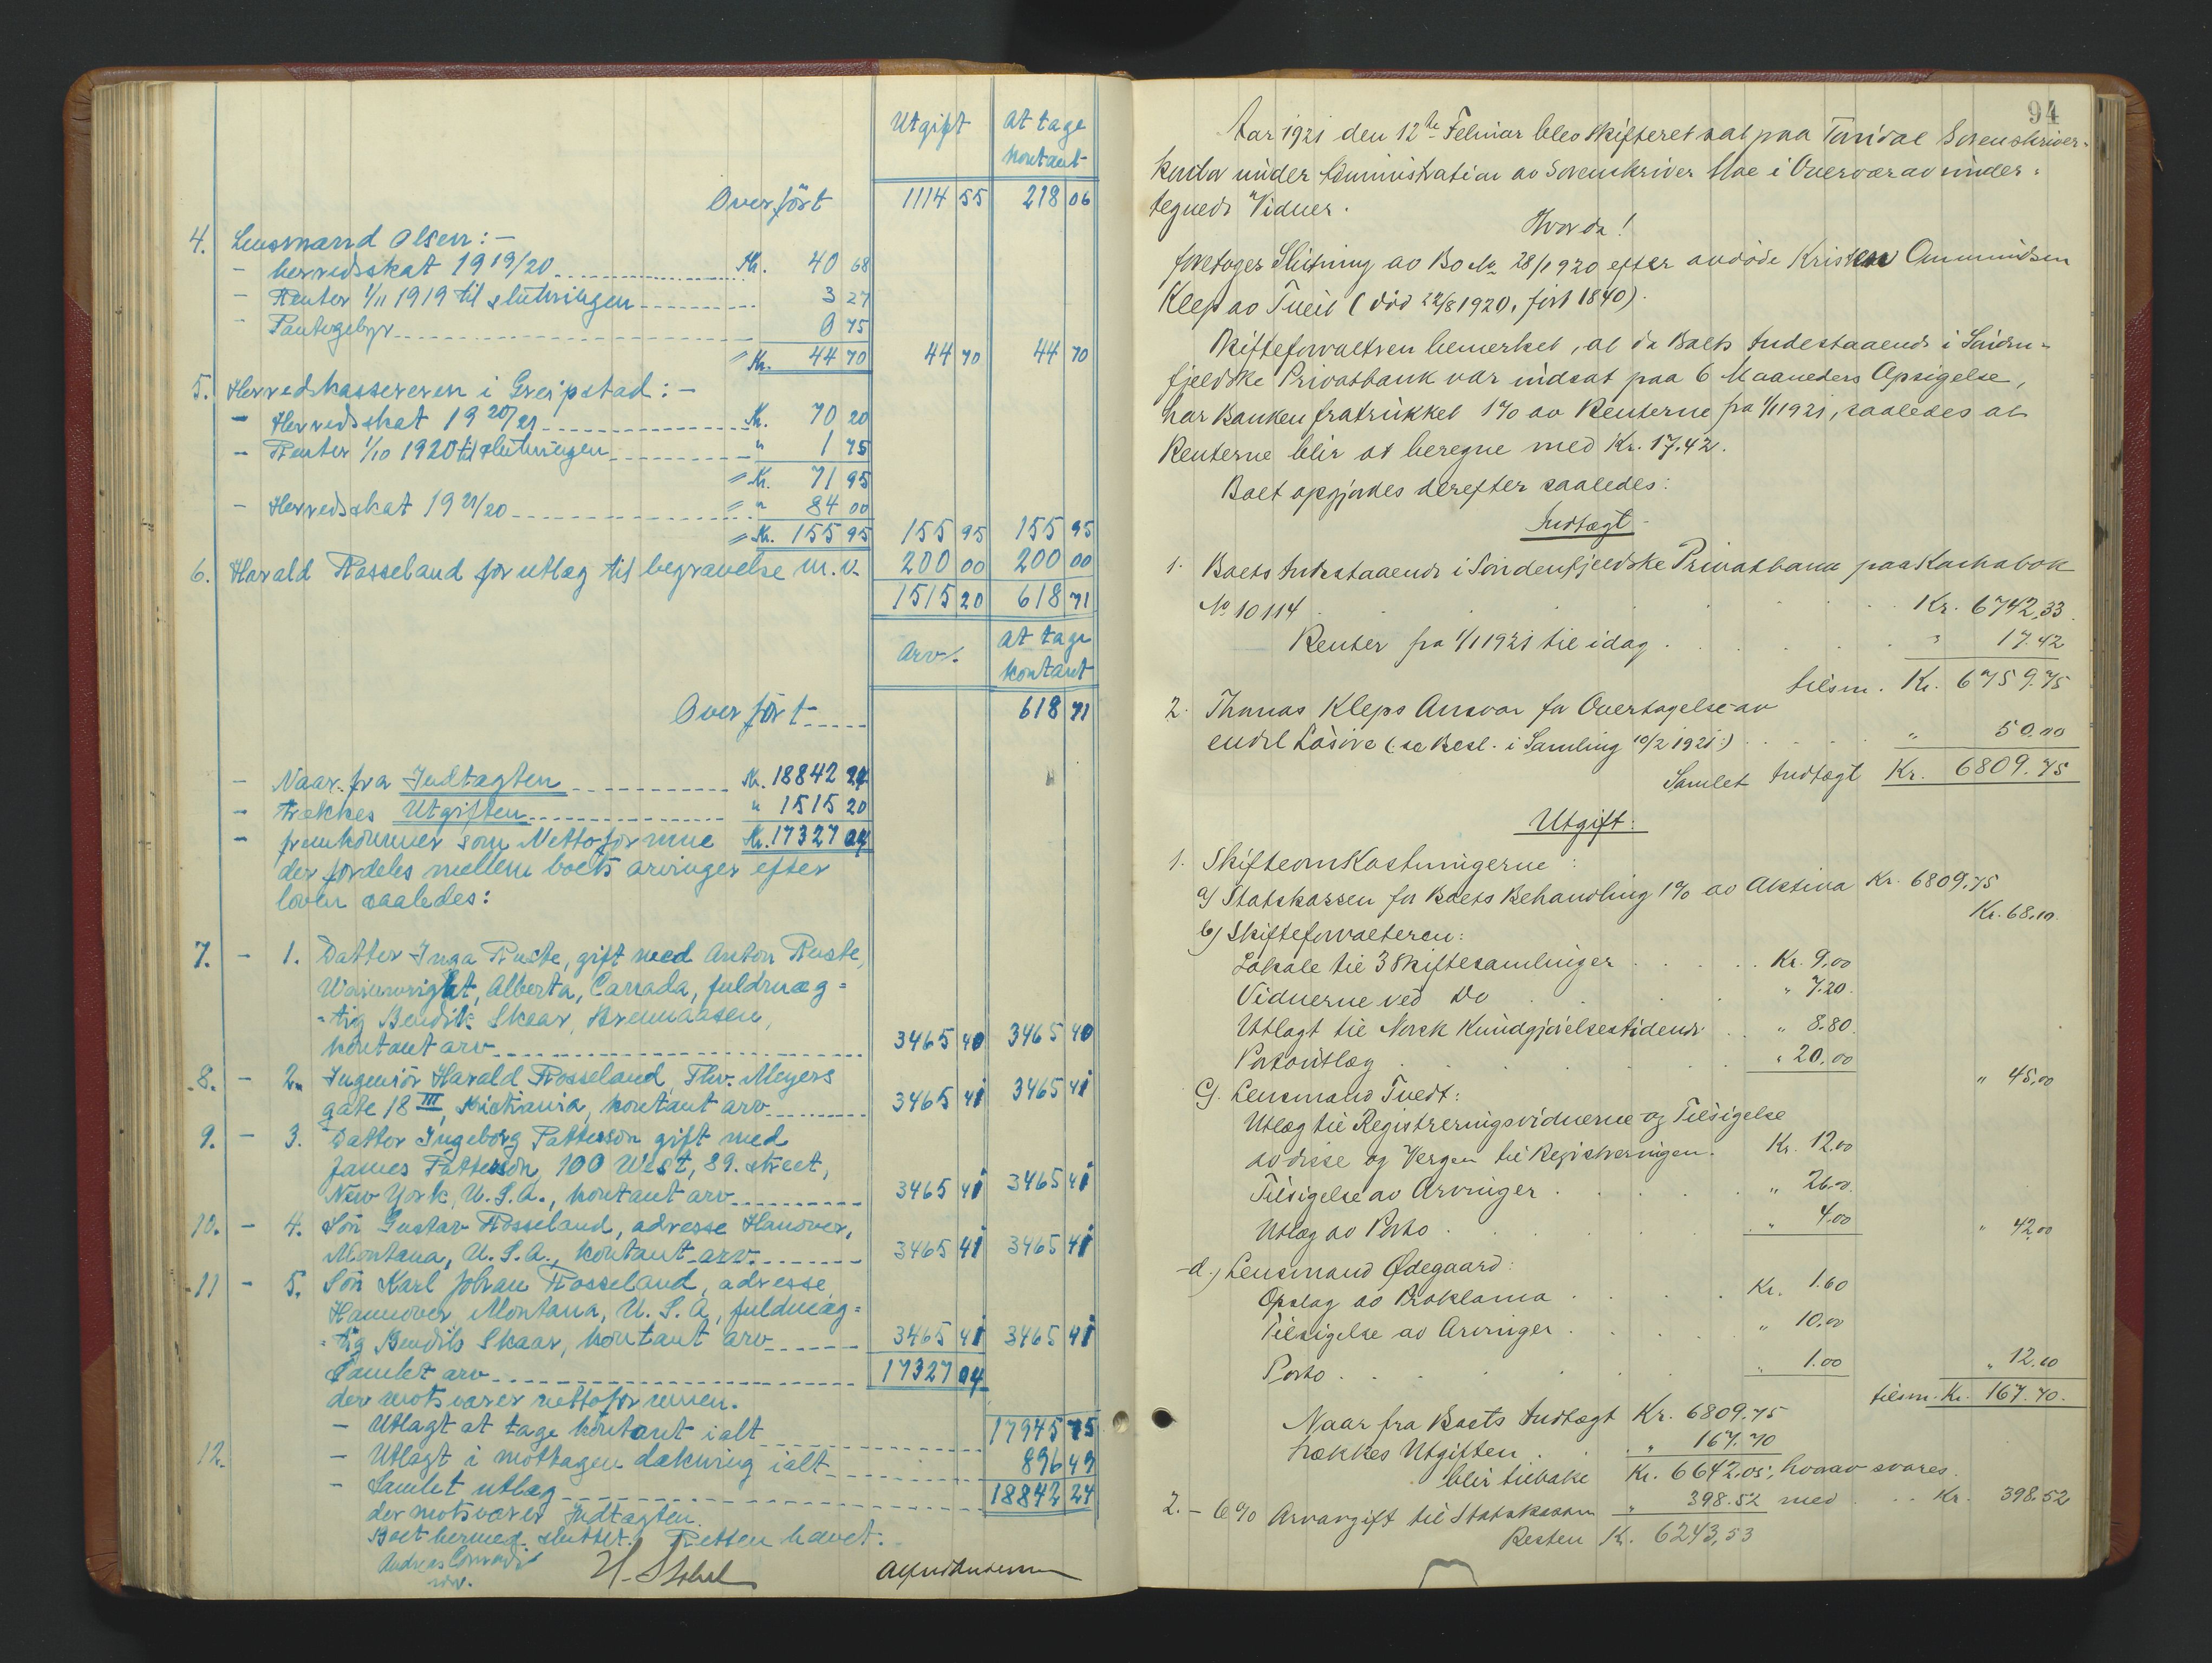 Utgift
At tage kontant
Overført 1114 55 218 06
4. Lensmand Olsen: -
- herredsskat 1919/20 Kr. 40 68
- Renter 1/11 1919 til slutningen 3 27
- Pantegebyr 0 75
= Kr. 44 70 44 70 44 70
5. Herredskassereren i Greipstad: -
- Herredsskat 1920/21 Kr. 70 20
- Renter 1/10 1920 til slutningen " 1 75
= Kr. 71 95
- Herredsskat 1921/20 = " 84 00
= Kr. 155 95 155 95 155 95
6. Harald Rosseland for utlæg til begravelse m.v. 200 00 200 00
1515 20 618 71
Arv.
At tage kontant
Overført 618 71
- Naar fra Indtægten Kr. 18842 24
- trækkes Utgiften " 1515 20
- fremkommer som Nettoformue Kr. 17327 04
der fordeles mellem boets arvinger efter
loven saaledes:
7. - 1. Datter Inga Ruste, gift med Anton Ruste,
Wainwright, Alberta, Canada, fuldmæg=
=tig Bendik Skaar,
kontant arv 3465 40 3465 40
8. - 2. Ingeniør Harald Rosseland, Thv. Meyers
gate 18 III, Kristiania, kontant arv 3465 41 3465 41
9. - 3. Datter Ingeborg Patterson gift med
James Patterson, 100 West, 89. street,
New York, U.S.A., kontant arv 3465 41 3465 41
10. - 4. Søn Gustav Rosseland, adresse Hanover,
Montana, U.S.A., kontant arv 3465 41 3465 41
11 - 5. Søn Karl Johan Rosseland, adresse
Hannover, Montana, U.S.A, fuldmæg=
=tig Bendik Skaar, kontant arv 3465 41 3465 41
Samlet arv 17327 04
der motsvarer nettoformuen.
- Utlagt at tage kontant ialt 17945 75
12. - Utlagt i mottagen dækning ialt 896 49
- Samlet utlæg 18842 24
der motsvarer Indtægten.
Boet hermed sluttet. Retten hævet.
94
Aar 1921 den 12te Februar blev Skifteret sat paa Toridal Sorenskriver-
kontor under Administration av Sorenskriver Moe i Overvær av under=
tegnede Vidner.
Hvorda!
foretoges Slutning av Bo No 28/1920 efter avdøde Kristen Ommundsen
Klep av Tveit (død 22/8 1920, født 1840).
Skifteforvalteren bemerket, at da Boets Indestaaende i Sønden-
fjeldske Privatbank var indsat paa 6 Maaneders Opsigelse,
har Banken fratrukket 1% av Renterne fra 1/1 1921, saaledes at
Renterne blir at beregne med Kr. 17.42.
Boet opgjordes derefter saaledes:
Indtægt
1. Boets Indestaaende i Søndenfjeldske Privatbank paa Kontrabok
No 10114 Kr. 6742,33
Renter fra 1/1 1921 til idag " 17.42
tilsm. Kr. 6759.75
2. Thomas Kleps Ansvar for Overtagelse av
endel Løsøre (: se Besl. i Samling 10/2 1921:) " 50.00
Samlet Indtægt Kr. 6809.75
Utgift:
1. Skifteomkostningerne:
a) Statskassen for Boets Behandling 1% av Aktiva Kr. 6809.75
Kr. 68.10
b) Skifteforvalteren:
Lokale til 3 Skiftesamlinger Kr. 9,00
Vidnerne ved Do " 7.20
Utlagt til Norsk Kundgjørelsestidende " 8.80
Portoutlæg " 20.00
" 45,00
c). Lensmand Tvedt:
Utlæg til Registreringsvidnerne og Tilsigelse
av disse og Vergen til Registreringen. Kr. 12.00
Tilsigelse av Arvinger " 26.00
Utlæg av Porto " 4.00
" 42,00
d.) Lensmand Ødegaard:
Opslag av Proklama Kr. 1.60
Tilsigelse av Arvinger " 10.00
Porto " 1.00 " 12.60
tilsm. Kr. 167.70.
Naar fra Boets Indtægt Kr. 6809.75
trækkes Utgiften " 167.70
blir tilbake Kr. 6642,05, hvorav svares
2. - 6% Arvavgift til Statskassen " 398.52 med Kr. 398.52
Resten Kr. 6243,53